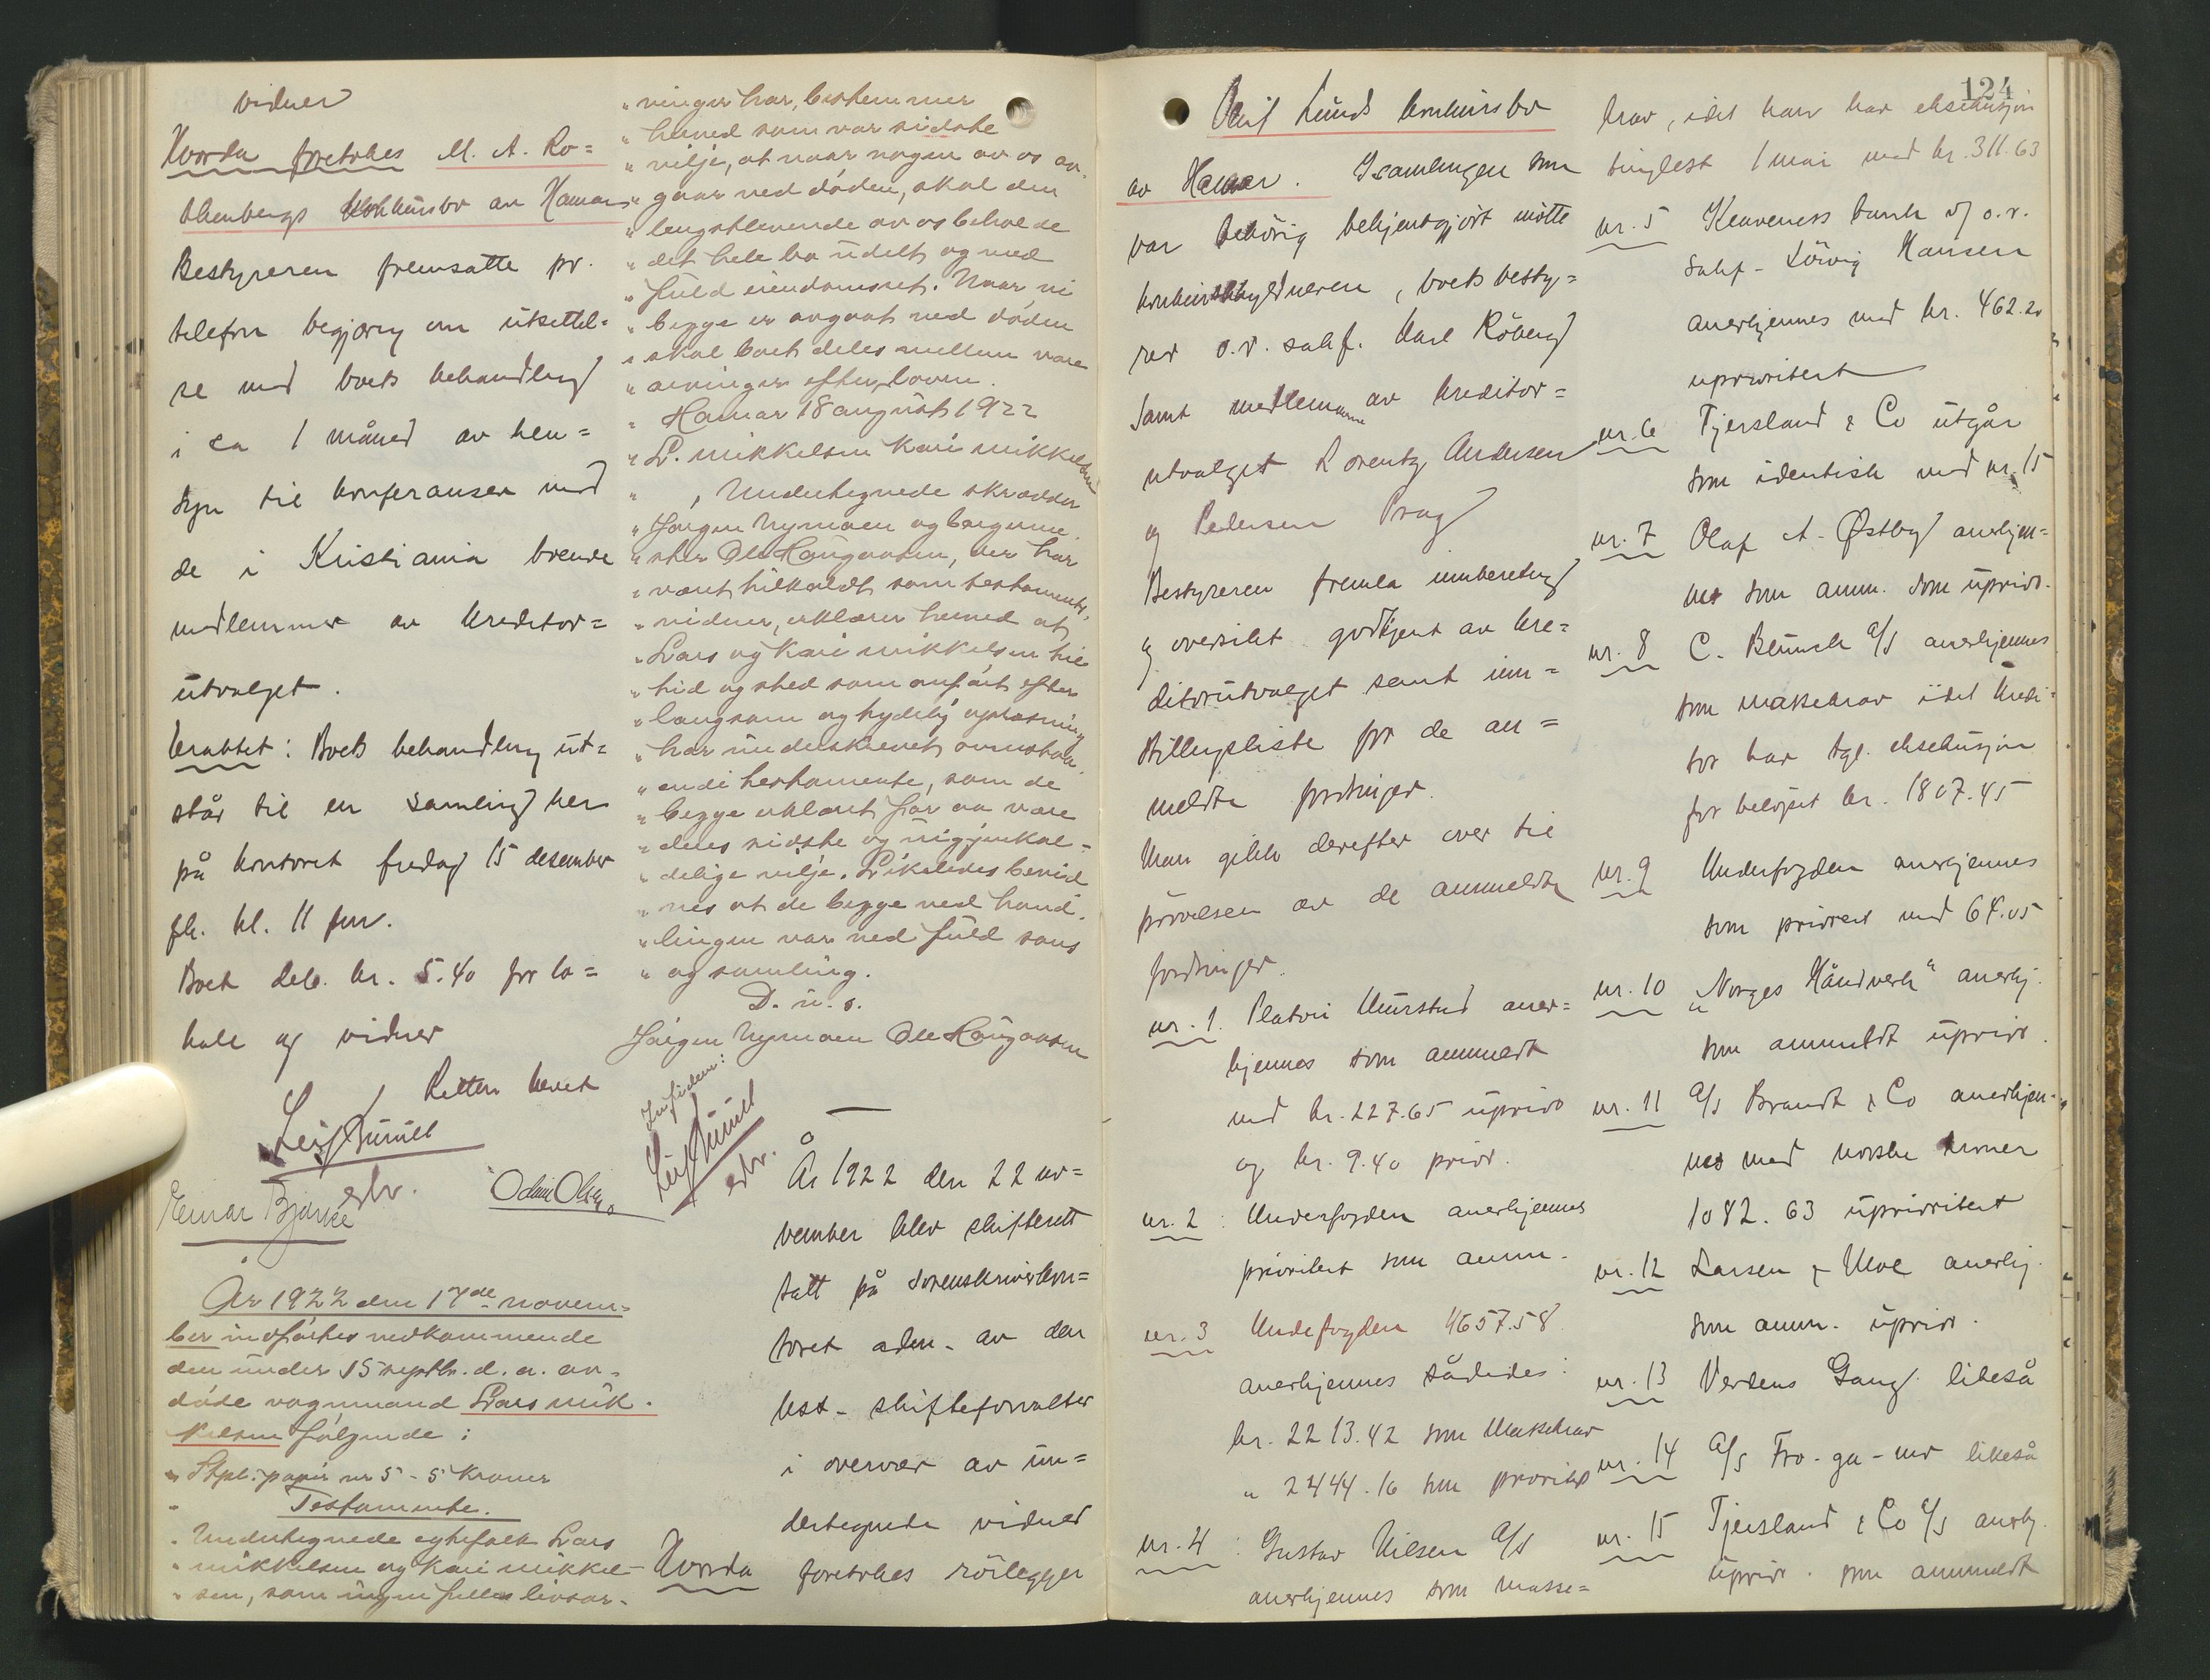 vidner
Hvorda foretokes M. A. Ro=
thenbergs konkursbo av Hamar
Bestyreren fremsatte pr.
telefon begjæring om utsettel=
se med boets behandling
i ca 1 måned av hen=
syn til konferanser med
de i Kristiania boende
medlemmer av kreditor=
utvalget.
Kraktet: Boets behandling ut=
står til en samling her
på kontoret fredag 15 desember
fk. kl. 11 fm.
Boet deb. kr. 5.40 for lo=
kale og vidner
Retten hevet
Odin Olsen
Einar Bjarke
År 1922 den 17de novem-
ber indførtes vedkommende
den under 15 septbr. d. a. av-
døde vognmand Lars Mik-
kelsen følgende:
" Stpl. papir nr 5 - 5 kroner
" Testamente.
" Undertegnede egtefolk Lars
" Mikkelsen og Kari Mikkel-
" sen, som ingen fælles livsar-
" vinger har, bestemmer
" herved som vor sidste
" vilje, at naar nogen av os av-
" gaar ved døden, skal den
" lengstlevende av os beholde
" det hele bo udelt og med
" fuld eiendomsret. Naar vi
" begge er avgaat ved døden
" skal boet deles mellem vore
" arvinger efter loven.
" Hamar 18 august 1922
" L. Mikkelsen Kari Mikkelsen
" Undertegnede skrædder
" Jørgen Nymoen og
" Ole Haugaasen, der har
" været tilkaldt som testaments-
" vidner, erklærer herved at
" Lars og Kari Mikkelsen til
" tid og sted som anført efter
" langsom og tydelig oplæsning
" har underskrevet ovenstaa-
" ende testamente, som de
" begge erklært for aa være
" deres sidste og uigjenkal-
" delige vilje. Likeledes bevid-
" nes at de begge ved hand-
" lingen var ved fuld sans
" og samling.
D. u. s.
Jørgen Nymoen Ole Haugaasen
In fidem:
År 1922 den 22 no=
vember blev skifterett
satt på sorenskriverkon=
toret adm. av den
kst. skifteforvalter
i overvær av un=
dertegnede vidner
Hvorda foretokes rørlegger
124
Leif Lunds konkursbo
av Hamar. Isamlingen som
var behørig bekjentgjort møtte
konkursskyldneren, boets besty=
rer o.r. sakf. Karl Röberg
samt medlemmerne av kreditor=
utvalget Lorentz Andersen
og Pedersen Prag
Bestyreren fremla innberetning
og oversikt godkjent av kre=
ditorutvalget samt inn=
stillingsliste for de an=
meldte fordringer.
Man gikk derefter over til
prøvelsen av de anmeldte
fordringer.
nr. 1. Platou Mürstad aner=
kjennes som anmeldt
med kr. 227.65 uprior
og kr. 9.40 prior.
nr. 2: Underfogden anerkjennes
prioritert som anm.
nr. 3 Underfogden 4657.58
anerkjennes således:
kr. 2213.42 som Massekrav
" 2444.16 som prioritet
nr. 4: Gustav Nilsen A/S
anerkjennes som masse=
krav, idet han har eksekusjon
tinglest 1 mai med kr. 311.63
nr. 5 Kenverness bank v/ o.r.
sakf. Lövig Hansen
anerkjennes med kr. 462.20
uprioritert
nr. 6 Tjersland & Co utgår
som identisk med nr. 15
nr. 7 Olaf A. Østby anerkjen=
nes som anm. som uprior.
nr. 8 C. Blunck A/S anerkjennes
som massekrav idet kredi=
tor har tgl. eksekusjon
for beløpet kr. 1807.45
nr. 9 Underfogden anerkjennes
som priorert med 64.05
nr. 10 "Norges Håndverk" anerkj.
som anmeldt uprior.
nr. 11 A/S Brandt & Co anerkjen-
nes med norske kroner
1082.63 uprioritert
nr. 12 Larsen & Moe anerkj.
som anm. uprior.
nr. 13 Verdens Gang. likeså
nr. 14 A/S Fro-ga-mo likeså
nr. 15 Tjersland & Co A/S anerkj.
uprior. som anmeldt